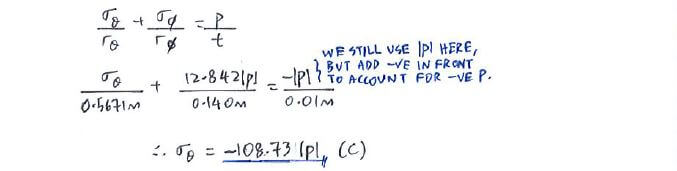 σθ/rθ + σφ/rφ = P/t
σθ/0.5671m + 12.842|p|/0.140m = -|p|/0.01m } WE STILL USE |P| HERE,
BUT ADD -VE IN FRONT
TO ACCOUNT FOR -VE P.
∴ σθ = -108.73 |p|,, (C)